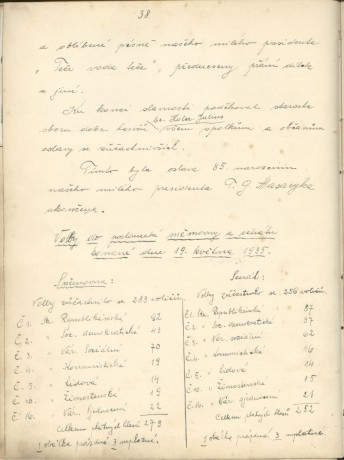 38
a oblíbené písně našeho milého presidenta
„Teče voda teče", předneseny přání dítek
a jiné.
Ku konci slavnosti poděkoval starosta
sboru dobr. hasičů br. Holer Julius všem spolkům a občanům
oslavy se súčastnivších.
Tímto byla oslava 85. narozenin
našeho milého presidenta T. G. Masaryka
ukončena.
Volby do poslanecké sněmovny a senátu
konané dne 19. května 1935.
Sněmovna:
Volby súčastnilo se 283 voličů.
Č. 1. str. Republikánská 82
Č. 2. „ Soc. demokratická 43
Č. 3. „ Nár. Sociální 70
Č. 4. „ Komunistická 19
Č. 5. „ Lidová 14
Č. 10. „ Živnostenská 19
Č. 16. „ Nár. sjednocení 22
Celkem platných hlasů 279
1 obálka prázdná 3 neplatné.
Senát:
Volby súčastnilo se 256 voličů.
Č. 1. str. Republikánská 87
Č. 2. „ Soc. demokratická 37
Č. 3. „ Nár. sociální 62
Č. 4. „ Komunistická 16
Č. 5. „ Lidová 14
Č. 10. „ Živnostenská 15
Č. 16. „ Nár. sjednocení 21
Celkem platných hlasů 252
1 obálka prázdná 3 neplatné.